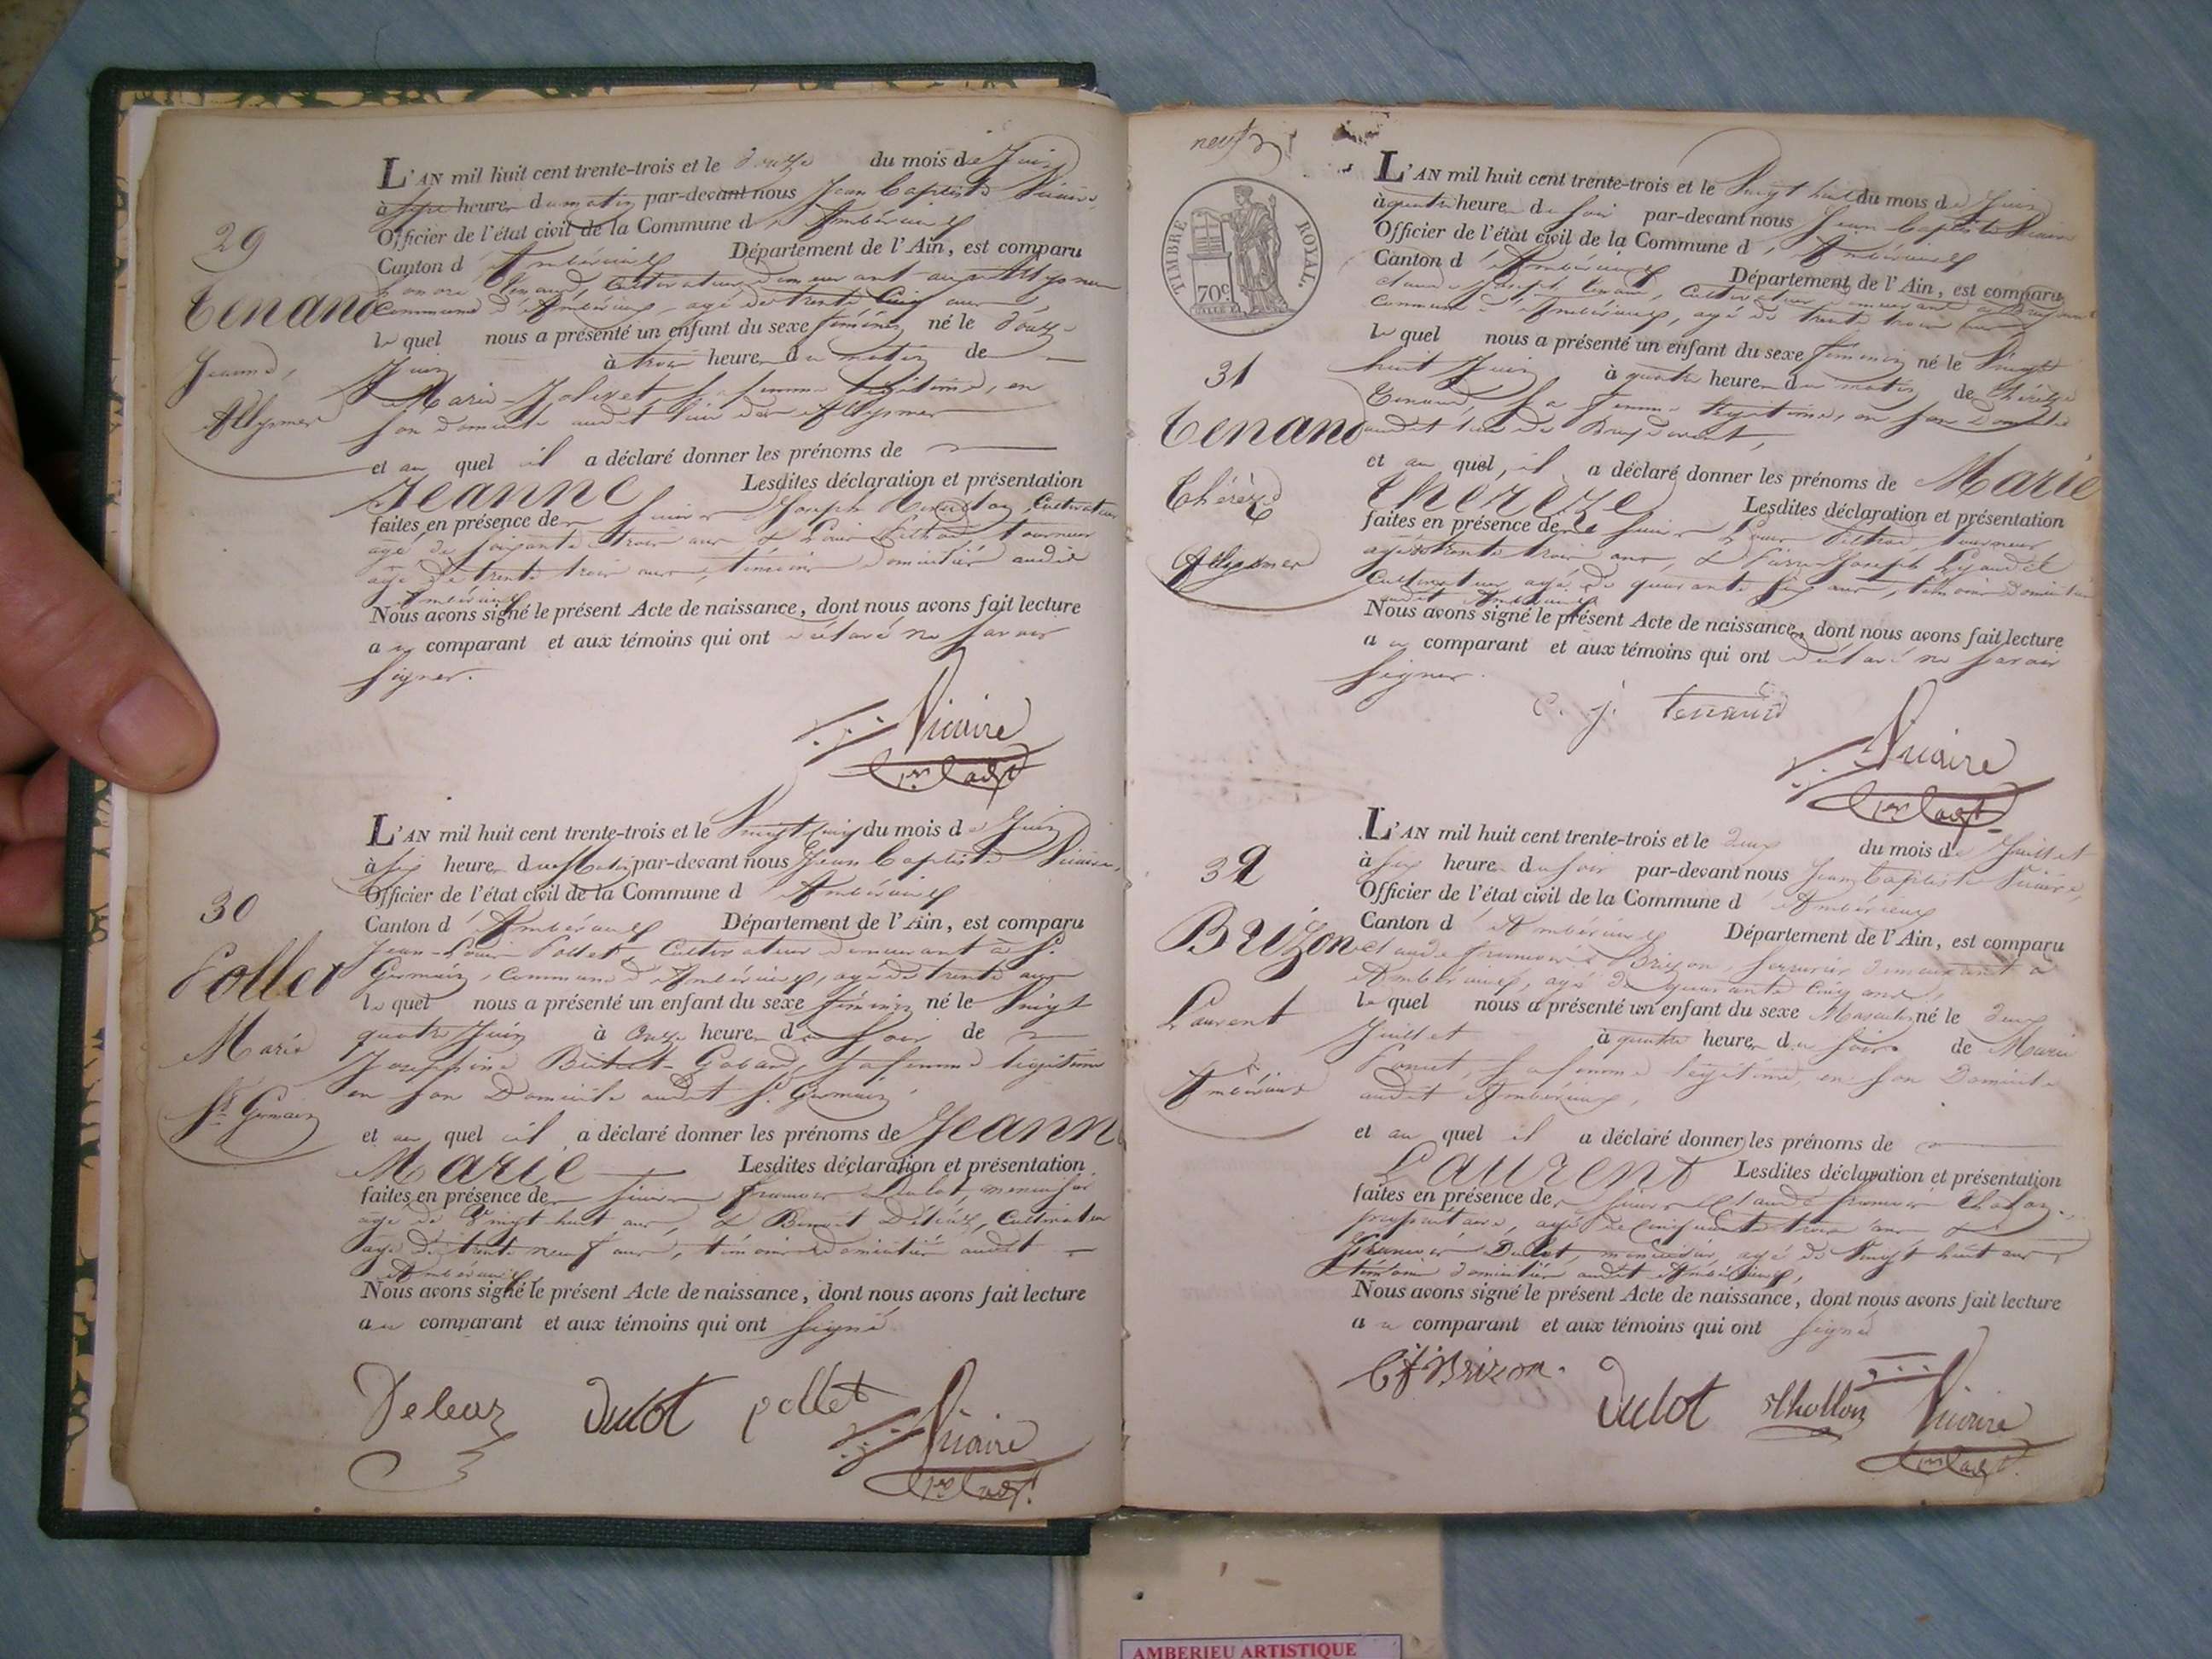 29
Tenand
Jeanne,
Allymer
L'AN mil huit cent trente-trois et le douze du mois de Juin
à sept heures du matin par-devant nous Jean Baptiste Vicaire,
Officier de l'état civil de la Commune d'Ambérieux
Canton d'Ambérieux Département de l'Ain, est comparu
honoré Tenand, Cultivateur demeurant au Allymer
commune d'Ambérieux, agé de trente cinq ans
le quel nous a présenté un enfant du sexe féminin né le douze
Juin à trois heures du matin de
Marie Jolivet, sa femme légitime, en
son domicile audit lieu des Allymer
et au quel il a déclaré donner les prénoms de
Jeanne Lesdites déclaration et présentation
faites en présence de Joseph Cultivateur
agé de soixante trois ans & Louis tourneur
âgé de trente trois ans, témoins domiciliés audit
Ambérieux
Nous avons signé le présent Acte de naissance, dont nous avons fait lecture
au comparant et aux témoins qui ont déclaré ne savoir
signer.
Vicaire
30
Pollet
Marie
St Germain
L'AN mil huit cent trente-trois et le Vingt cinq du mois de Juin
à six heures du Matin par-devant nous Jean Baptiste Vicaire,
Officier de l'état civil de la Commune d'Ambérieux
Canton d'Ambérieux Département de l'Ain, est comparu
Jean-Louis Pollet, Cultivateur demeurant à St
Germain, commune d'Ambérieux, agé de trente ans
le quel nous a présenté un enfant du sexe féminin né le Vingt
quatre Juin à onze heures du soir de
Josephine Gobard, sa femme légitime
en son Domicile audit St Germain
et au quel il a déclaré donner les prénoms de Jeanne
Marie Lesdites déclaration et présentation
faites en présence de françois Dulot, menuisier
âgé de Vingt huit ans, & Benoit Cultivateur
agé de trente neuf ans, témoins domiciliés audit
Ambérieux
Nous avons signé le présent Acte de naissance, dont nous avons fait lecture
au comparant et aux témoins qui ont signé
Deleuz Dulot pollet Vicaire
neuf
TIMBRE ROYAL.
70c.
31
Tenand
Thérèze
Allymer
L'AN mil huit cent trente-trois et le Vingt huit du mois de Juin
à quatre heures du soir par-devant nous Jean Baptiste Vicaire
Officier de l'état civil de la Commune d'Ambérieux
Canton d'Ambérieux Département de l'Ain, est comparu
Claude Joseph Tenand, Cultivateur demeurant à
commune d'Ambérieux, agé de trente trois ans
le quel nous a présenté un enfant du sexe féminin né le Vingt
huit Juin à quatre heures du matin de Thérèze
Tenand, sa femme légitime, en son Domicile
audit lieu de
et au quel, il a déclaré donner les prénoms de Marie
Thérèze Lesdites déclaration et présentation
faites en présence de Louis tourneur
agé de trente trois ans, & Pierre Joseph
Cultivateur agé de quarante six ans, témoins Domiciliés
audit Ambérieux
Nous avons signé le présent Acte de naissance, dont nous avons fait lecture
au comparant et aux témoins qui ont déclaré ne savoir
signer.
C. j. tenand
Vicaire
32
Brizon
Laurent
Ambérieux
L'AN mil huit cent trente-trois et le deux du mois de Juillet
à six heures du soir par-devant nous Jean Baptiste Vicaire,
Officier de l'état civil de la Commune d'Ambérieux
Canton d'Ambérieux Département de l'Ain, est comparu
Claude françois Brizon, serrurier demeurant à
Ambérieux, agé de quarante cinq ans,
le quel nous a présenté un enfant du sexe Masculin né le deux
Juillet à quatre heures du soir de Marie
sa femme légitime, en son Domicile
audit Ambérieux,
et au quel il a déclaré donner les prénoms de
Laurent Lesdites déclaration et présentation
faites en présence de Claude françois
propriétaire, agé de cinquante trois ans &
françois Dulot, menuisier, agé de Vingt huit ans
témoins domiciliés audit Ambérieux,
Nous avons signé le présent Acte de naissance, dont nous avons fait lecture
au comparant et aux témoins qui ont signé
Cf Brizon.
Dulot Vicaire
AMBERIEU ARTISTIQUE